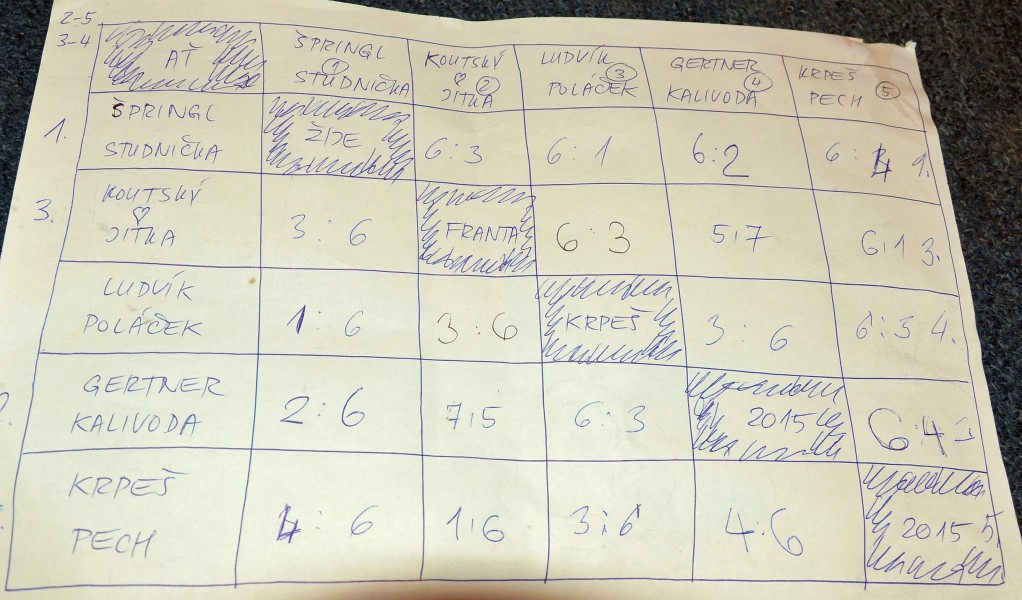 2-5
3-4
AŤ
ŠPRINGL ① STUDNIČKA
KOUTSKÝ ♡ ② JITKA
LUDVÍK ③ POLÁČEK
GERTNER ④ KALIVODA
KRPEŠ ⑤ PECH
1. ŠPRINGL STUDNIČKA ŽIJE 6:3 6:1 6:2 6:4 1.
3. KOUTSKÝ ♡ JITKA 3:6 FRANTA 6:3 5:7 6:1 3.
LUDVÍK POLÁČEK 1:6 3:6 KRPEŠ 3:6 6:3 4.
GERTNER KALIVODA 2:6 7:5 6:3 2015 6:4
KRPEŠ PECH 4:6 1:6 3:6 4:6 2015 5.